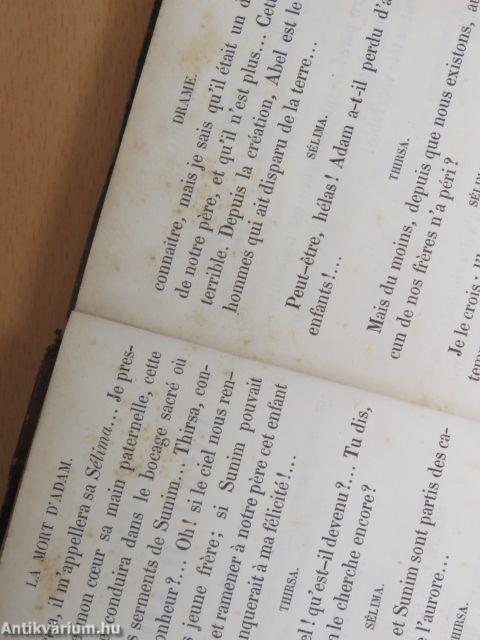 LA MORT D'ADAM.
il m'appellera sa Sélima... Je pres-
mon cœur sa main paternelle, cette
onduira dans le bocage sacré où
s serments de Sunim... Thirsa, con-
onheur?... Oh! si le ciel nous ren-
s jeune frère; si Sunim pouvait
et ramener à notre père cet enfant
nquerait à ma félicité!...
THIRSA.
el! qu'est-il devenu?... Tu dis,
n le cherche encore?
SÉLIMA.
et Sunim sont partis des ca-
l'aurore...
THIRSA.
DRAME.
connaître, mais je sais qu'il était un d
de notre père, et qu'il n'est plus... Cett
terrible. Depuis la création, Abel est le
hommes qui ait disparu de la terre...
SÉLIMA.
Peut-être, hélas! Adam a-t-il perdu d'a
enfants!...
THIRSA.
Mais du moins, depuis que nous existons, au
cun de nos frères n'a péri?
SÉLIM
Je le crois
temp
Antikvárium.hu